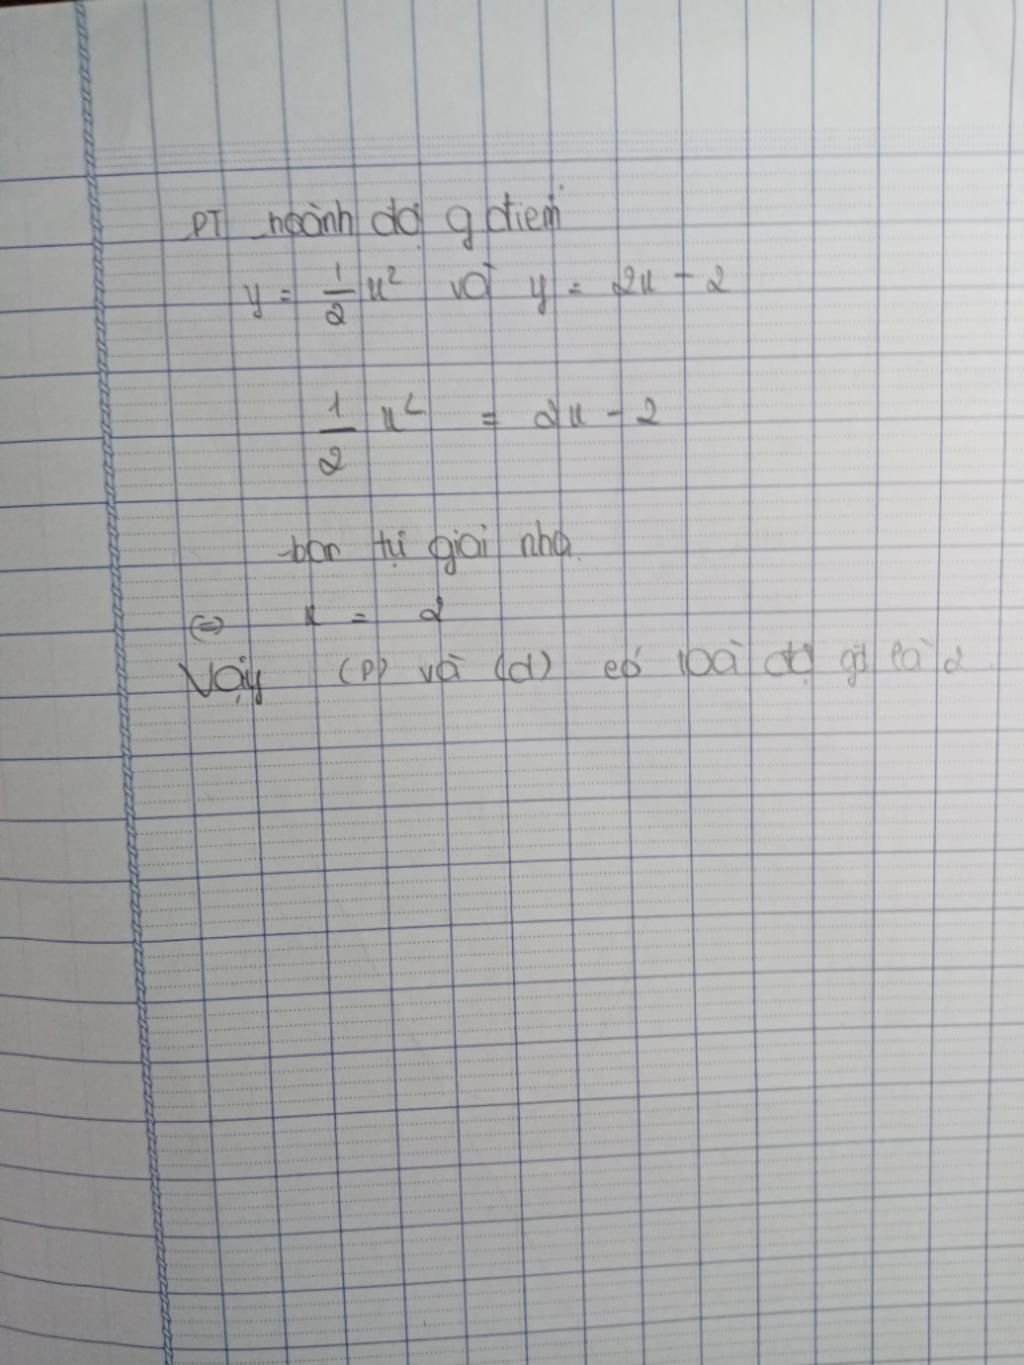 PT hoành độ g điểm
y = 1/2 x² và y = 2x - 2
1/2 x² = 2x - 2
bạn tự giải nha.
<=> x = 2
Vậy (P) và (d) có toà độ gđ là 2